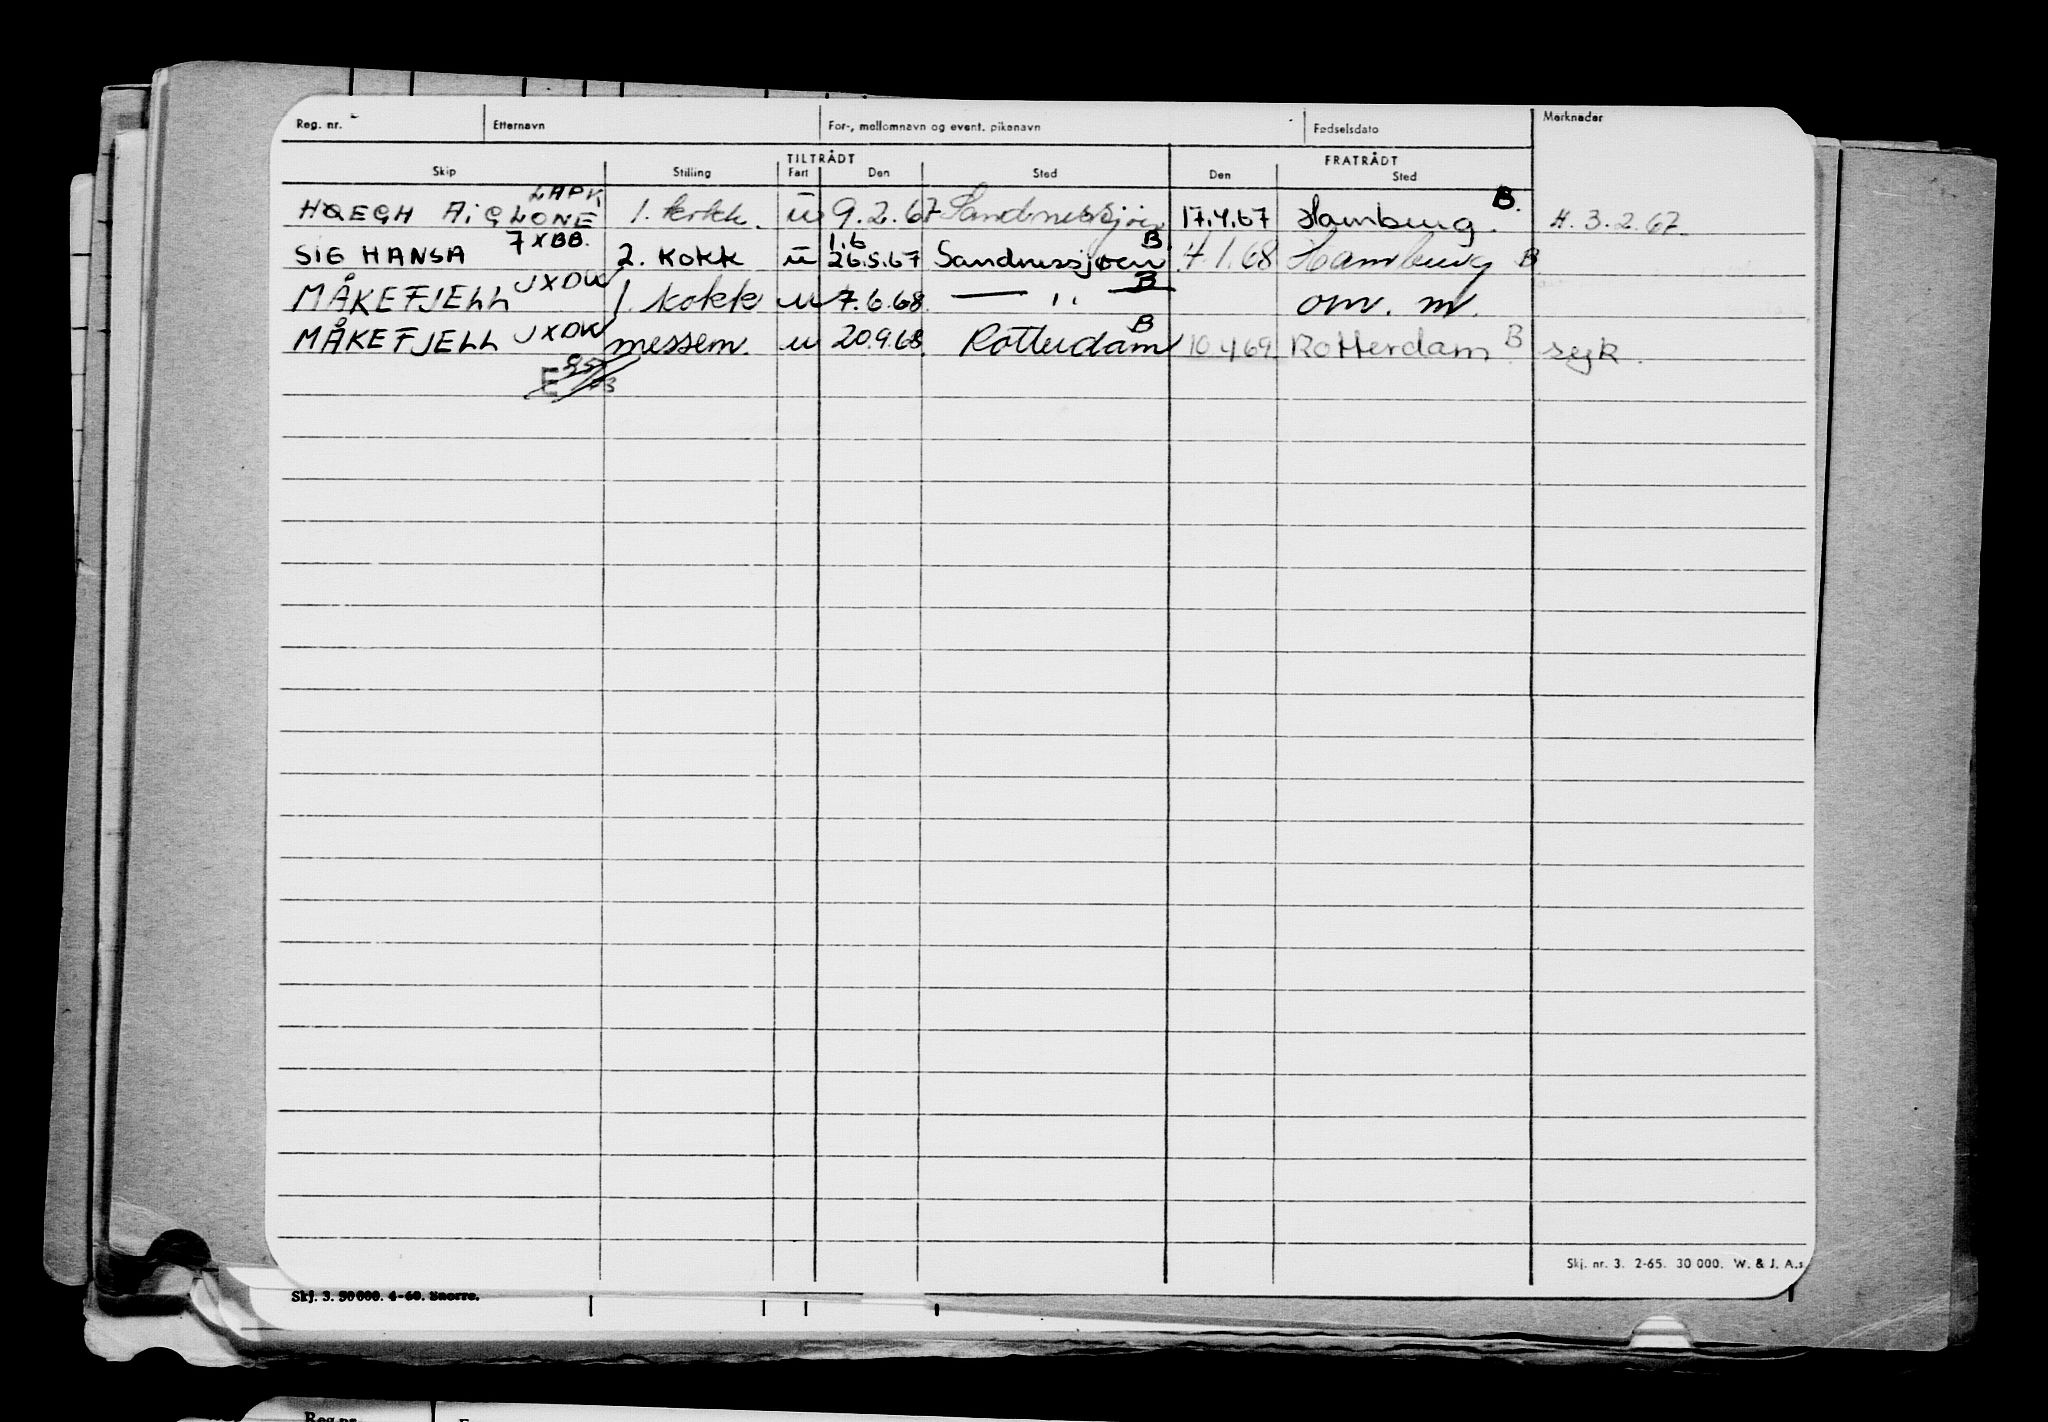 Reg. nr. Etternavn For-, mellomnavn og event. pikenavn Fødselsdato Merknader
TILTRÅDT FRATRÅDT
Skip Stilling Fart Den Sted Den Sted
LAPK
HØEGH AIGLONE 1. kokk. u 9.2.67 Sandnessjøen 17.4.67 Hamburg. B. H. 3.2.67.
7XBB. 1.6
SIG HANSA 2. kokk u 26.5.67 Sandnessjøen B. 4.1.68 Hamburg B
MÅKEFJELL JXDW 1. kokk u 7.6.68. — ,, — B om. m.
MÅKEFJELL JXDW messem. u 20.9.68. Rotterdam B 10.4.69 Rotterdam B. syk.
E
Skj. nr. 3. 2-65. 30 000. W. & J. A.s
Skj. 3. 50 000. 4-60. Snorre.
Reg.nr.